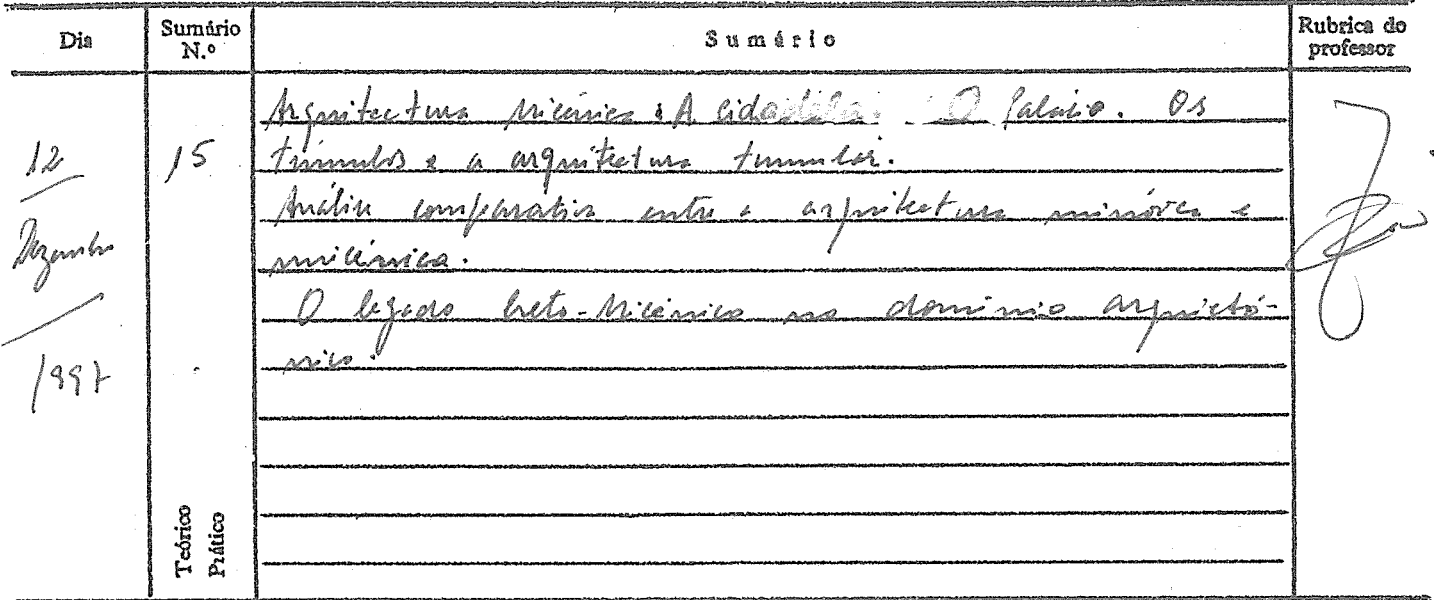 Dia
Sumário N.º
Sumário
Rubrica do professor
12
Dezembro
1997
15
Teórico
Prático
Arquitectura Micénica: A cidadela. O Palácio. Os
túmulos e a arquitectura tumular.
Análise comparativa entre a arquitectura minóica e
micénica.
O legado Creto-Micénico no domínio arquictó-
nico.